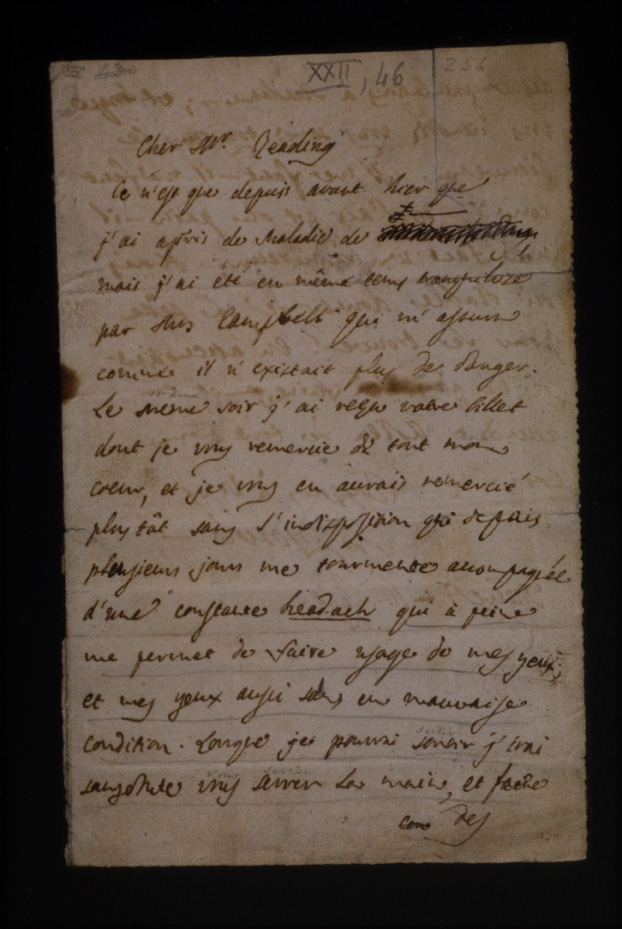 XXII, 46
256
Cher Mr Reading
Ce n'est que depuis avant hier que
j'ai apris de Maladie de
mais j'ai eté en même tems tranquilisé
par Mrs Campbell qui m'assura
comme il n'existait plus de Danger.
Le meme soir j'ai reçu votre billet
dont je vous remercie de tout mon
coeur, et je vous en aurais remercié
plus tât sans l'indisposition qui depuis
plusieurs jours me tourmente accompagnée
d'une constante headach qui à peine
me permet de faire usage de mes yeux,
et mes yeux aussi sont en mauvaise
condition. Lorsque je pourrai sortir j'irai
sansdoute vous serrer la main, et
des